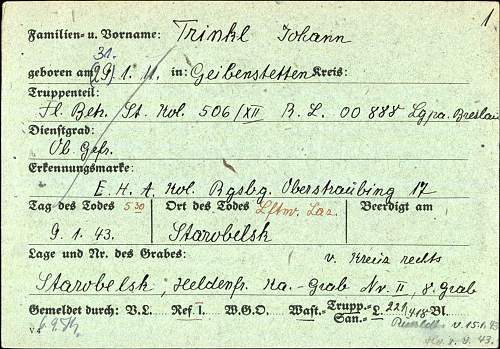 1
Familien- u. Vorname: Trinkl Johann
31.
geboren am (29) 1. 11. in: Geibenstetten Kreis:
Truppenteil:
Fl. Betr. St. Kol. 506/XII R. L. 00888 Lgpa. Breslau
Dienstgrad:
Ob. Gefr.
Erkennungsmarke:
E. H. A. Kol. Rgsbg. Oberstraubing 17
Tag des Todes 5 30 Ort des Todes Lftw. Laz. Beerdigt am
9. 1. 43. Starobelsk
Lage und Nr. des Grabes: v. Kreuz rechts
Starobelsk, Heldenfr. Ka.-Grab Nr. II, 8. Grab
Gemeldet durch: V.L. Ref. I. W.G.O. Wast.- Trupp.- San.- L. 221/418-Bl.
v. 15.1.43